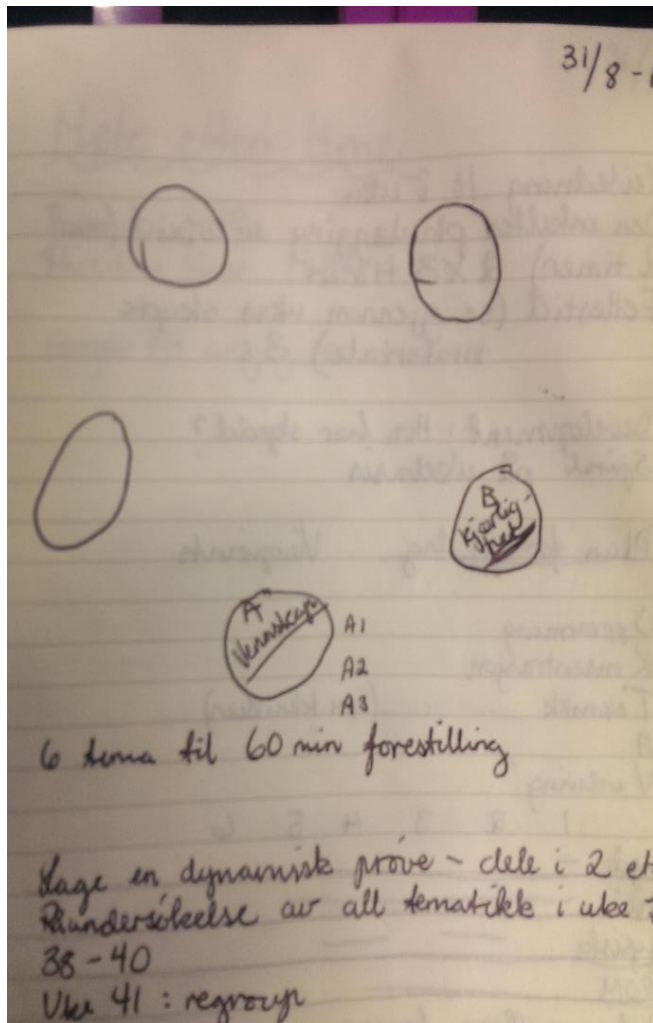 31/8 -
B
Kjærlig-
het
A
Vennskap
A1
A2
A3
6 tema til 60 min forestilling
Lage en dynamisk prøve - dele i 2 et
av all tematikk i uke
38 - 40
Uke 41 : regroup